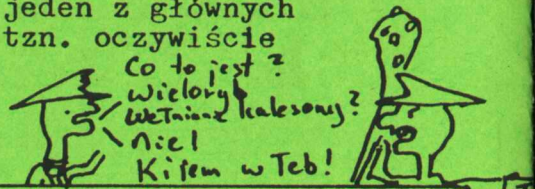 jeden z głównych
tzn. oczywiście
Co to jest?
Wieloryb
Wełniane kalesony?
Nie!
Kijem w Łeb!